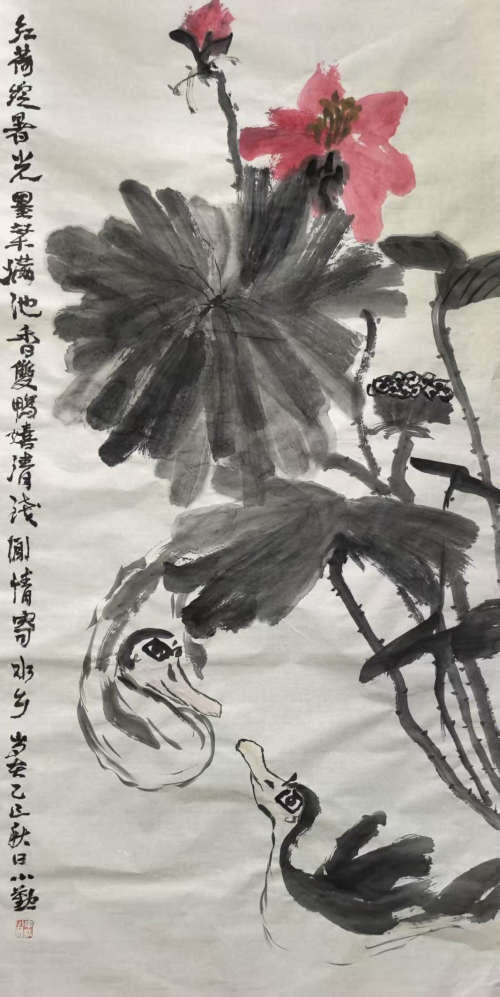 红荷绽暑光墨叶满池香双鸭嬉清浅闲情寄水乡 岁在乙巳秋日小